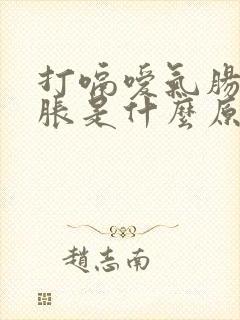 打嗝噯氣腸
脹是什麼原
趙志南